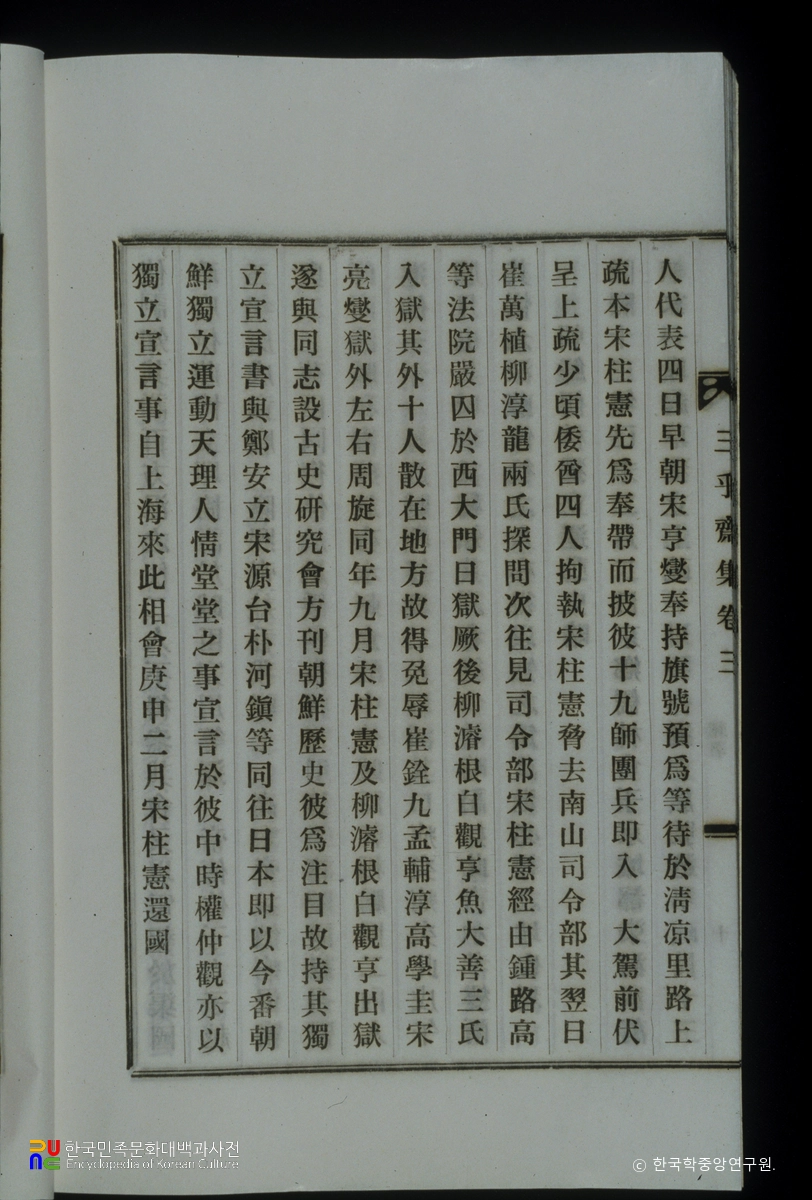 三乎齋集卷三
人代表四日早朝宋亨燮奉持旗號預爲等待於淸凉里路上
疏本宋柱憲先爲奉帶而披彼十九師團兵即入 大駕前伏
呈上疏少頃倭酋四人拘執宋柱憲脅去南山司令部其翌日
崔萬植柳淳龍兩氏探問次往見司令部宋柱憲經由鍾路高
等法院嚴囚於西大門日獄厥後柳濬根白觀亨魚大善三氏
入獄其外十人散在地方故得免辱崔銓九孟輔淳高學圭宋
亮燮獄外左右周旋同年九月宋柱憲及柳濬根白觀亨出獄
遂與同志設古史硏究會方刊朝鮮歷史彼爲注目故持其獨
立宣言書與鄭安立宋源台朴河鎭等同往日本即以今番朝
鮮獨立運動天理人情堂堂之事宣言於彼中時權仲觀亦以
獨立宣言事自上海來此相會庚申二月宋柱憲還國
한국민족문화대백과사전
Encyclopedia of Korean Culture
© 한국학중앙연구원.